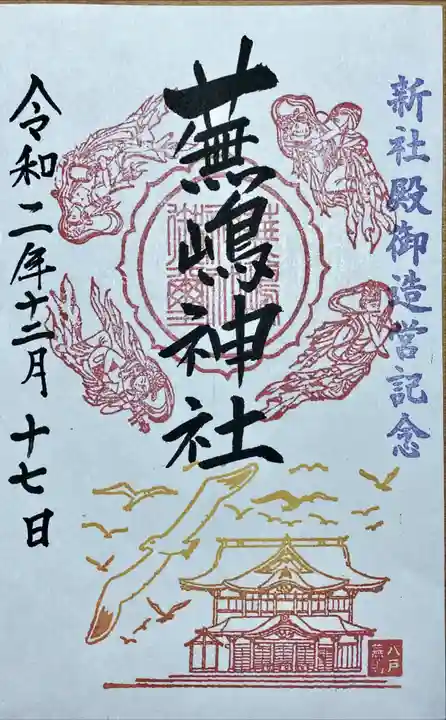 新社殿御造営記念
蕪嶋神社
令和二年十二月十七日
八戸